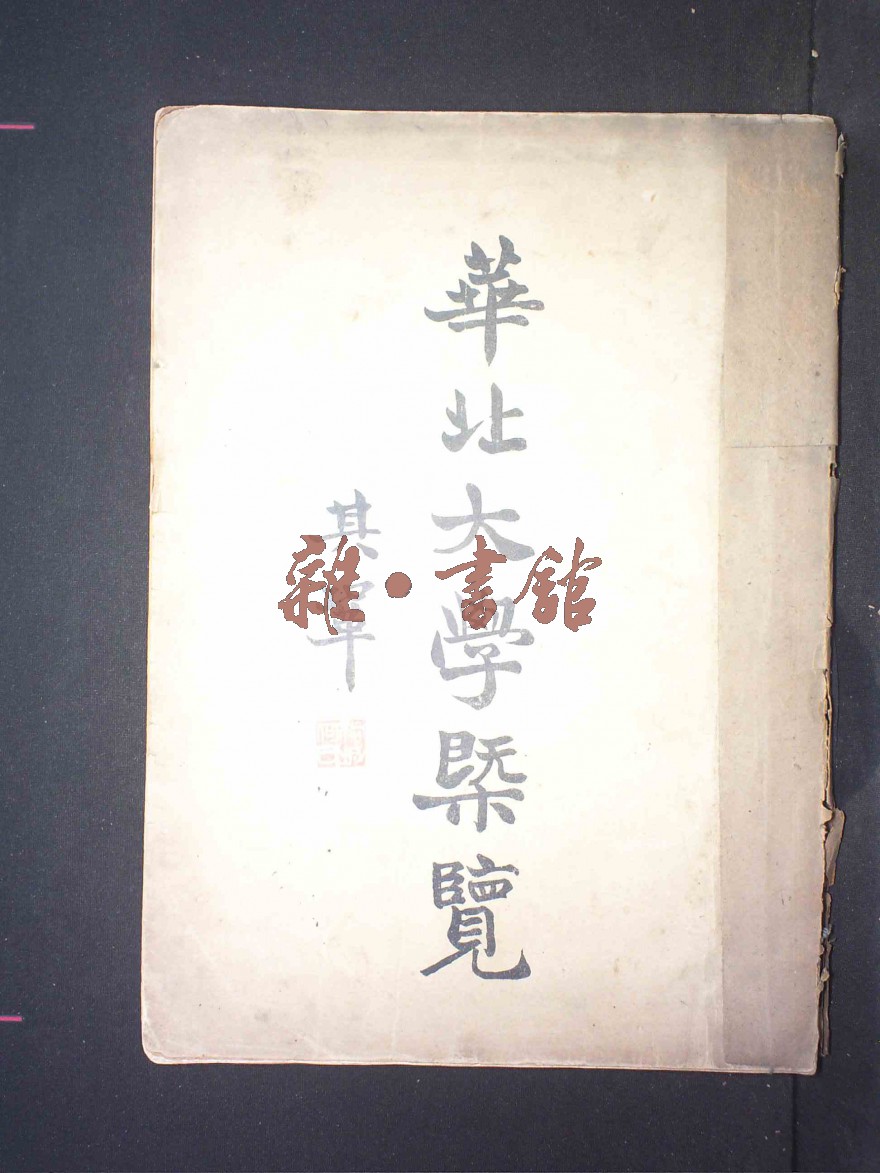 華北大學槩覽
其鞏
雜·書館